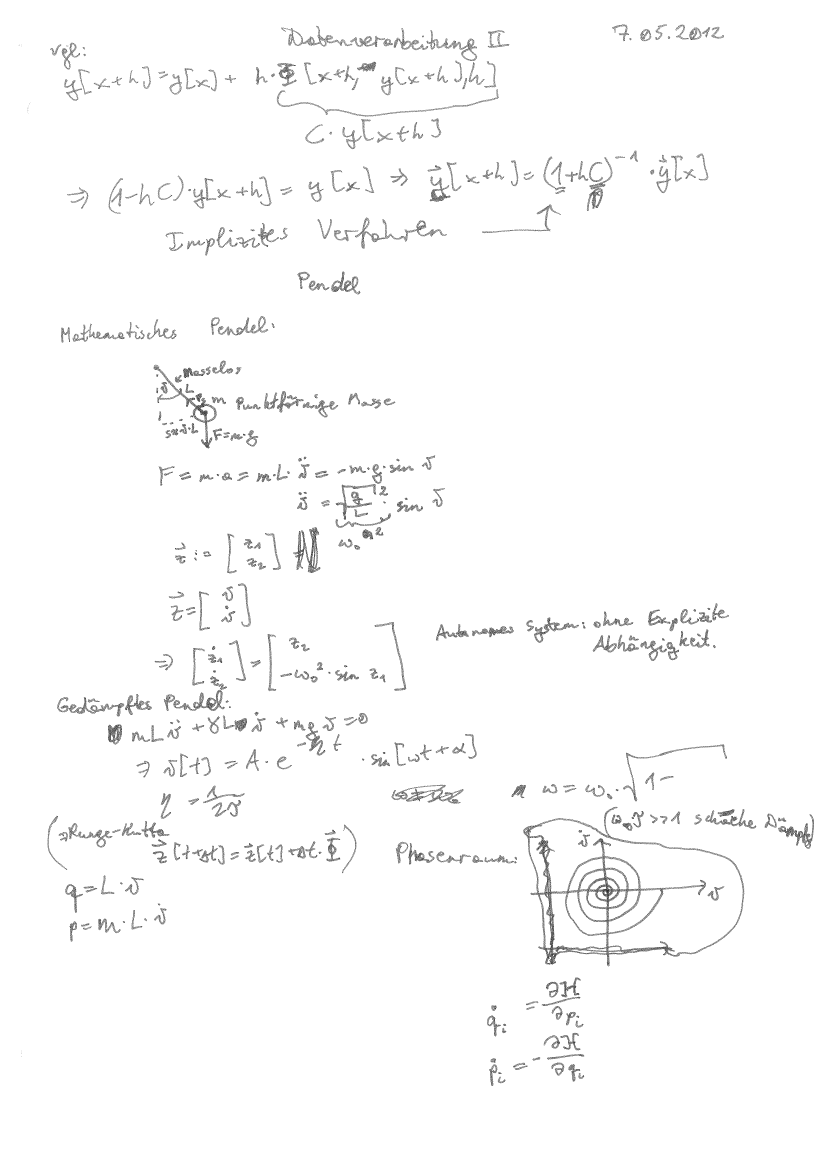 Datenverarbeitung II
7.05.2012
vgl:
y[x+h]=y[x]+ h·Φ[x+h, y[x+h],h]
C·y[x+h]
⇒ (1-hC)·y[x+h] = y[x] ⇒ y⃗[x+h] = (1+hC)⁻¹·y⃗[x]
Implizites Verfahren
Pendel
Mathematisches Pendel:
Masselos
ϑ L m Punktförmige Masse
sin ϑ·L
F=m·g
F = m·a = m·L·ϑ̈ = -m·g·sin ϑ
ϑ̈ = √(g/L)² · sin ϑ
ω₀²
z⃗ := [z₁ z₂]
z⃗ = [ϑ ϑ̇]
⇒ [ż₁ ż₂] = [z₂ -ω₀²·sin z₁]
Autonomes System: ohne Explizite
Abhängigkeit.
Gedämpftes Pendel:
mLϑ̈ + γLϑ̇ + mgϑ = 0
⇒ ϑ[t] = A·e^(-ηt) · sin[ωt+α]
ω = ω₀·√(1-
(⇒Runge-Kutta
z⃗[t+Δt] = z⃗[t]+Δt·Φ⃗)
Phasenraum:
ϑ̇
ϑ
q = L·ϑ
p = m·L·ϑ̇
q̇ᵢ = ∂H/∂pᵢ
ṗᵢ = -∂H/∂qᵢ